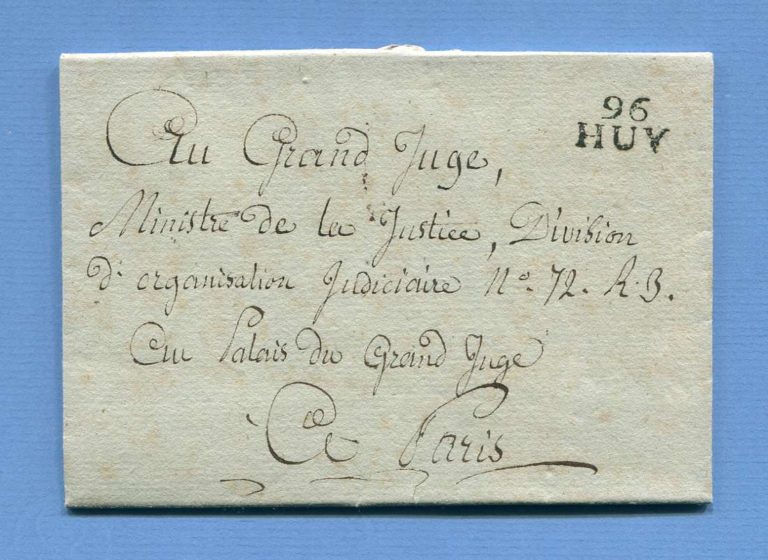 96
HUY
Au Grand Juge,
Ministre de la Justice, Division
d'organisation Judiciaire N° 72. R. B.
Au Palais du Grand Juge
A Paris